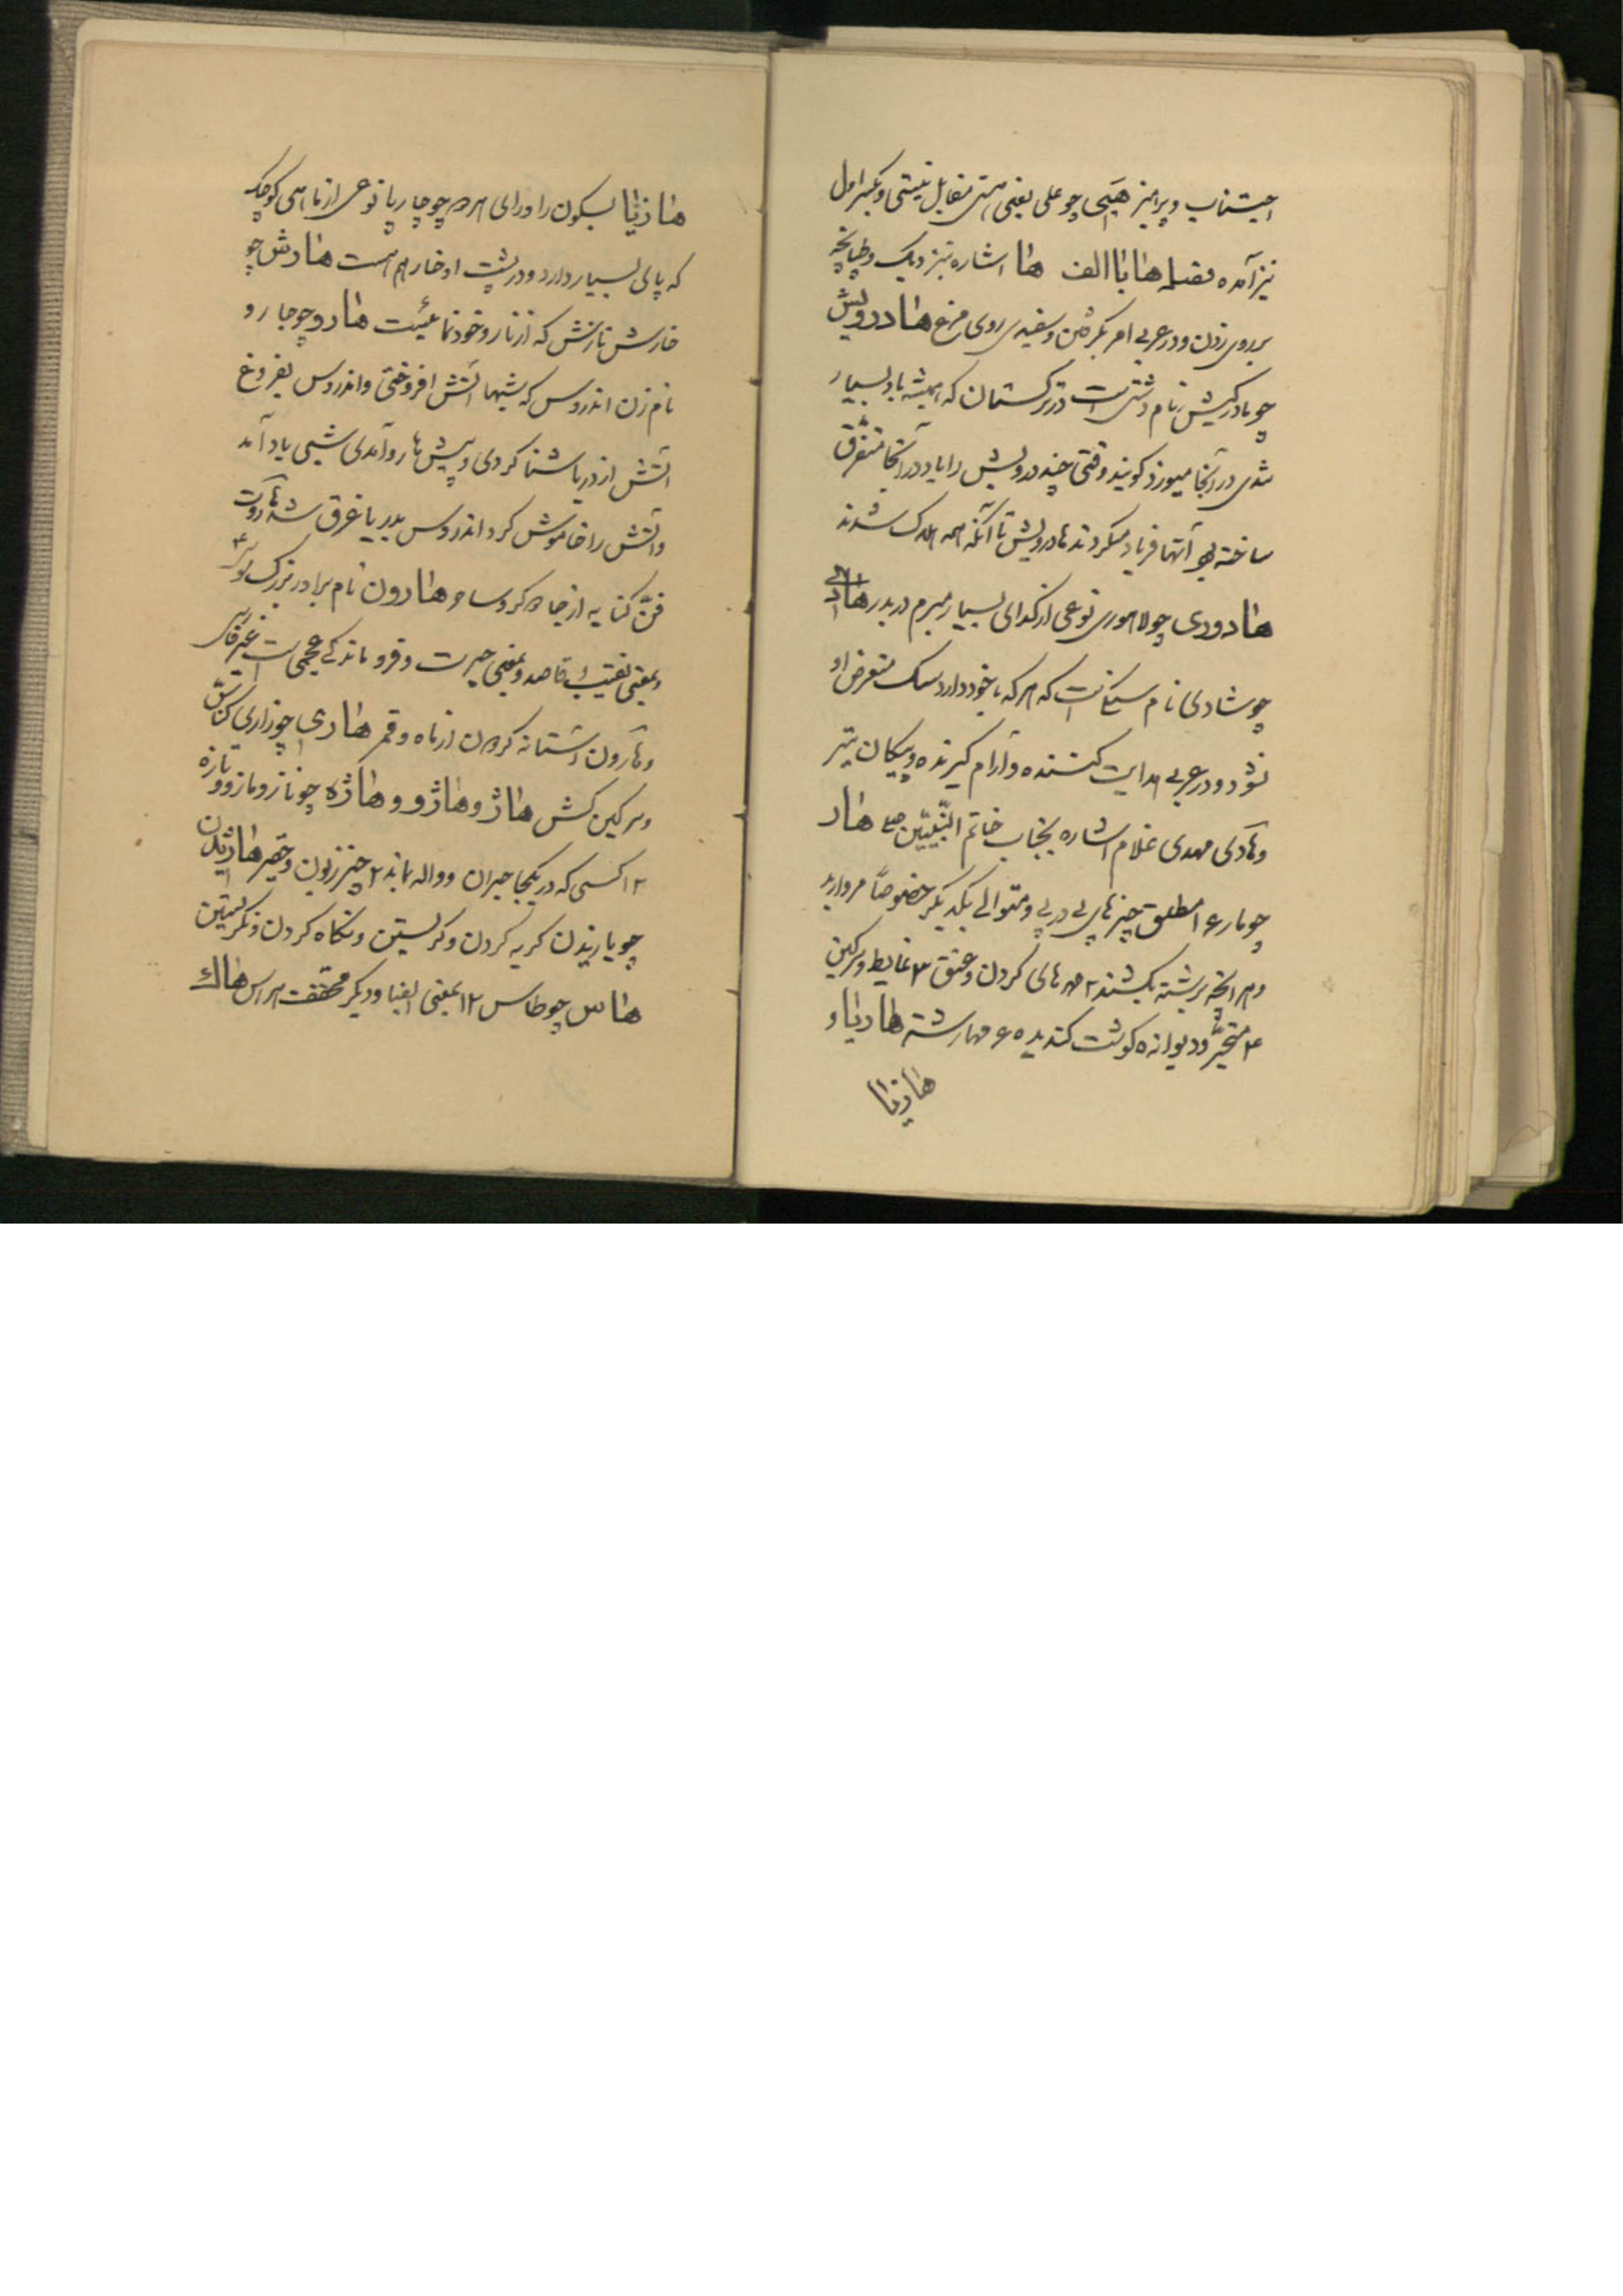 اجتناب و پرهیز هیی چو علی یعنی هستی مقابل نیستی و بکسر اول
نیز آمده مقبله ها با الف ها اشاره بنزدیک و طپانچه
بر روی زدن و در عربی امر بگرفتن و سفیدی روی مرغ هادرویش
چو بادرکیش نام دشتی است در ترکستان که همیشه باد بسیار
تندی در آنجا میوزد گویند وقتی چند درویش را باد در آنجا متفرق
ساخته بود آنها فریاد میکردند هادرویش تا آنکه همه هلاک شدند
هادوری چو لاهوری نوعی از گدای بسیار مبرم در بدر هادی
چو شادی نام سنگیست که هر که با خود دارد سگ متعرض او
نشود و در عربی هدایت کننده و آرام گیرنده و پیکان تیر
و هادی مهدی غلام اشاره بجناب خاتم النبیین ص هار
چو مار ع ۱ مطلق چیزهای پی در پی و متوالی یکدیگر خصوصا مروارید
و هر آنچه برشته بکشند ۲ مهرهای گردن و عنق ۳ غایط و سرگین
۴ متحیر و دیوانه ۵ گوشت گندیده ۶ مهار شتر هاریاء
هازنا
هازنا بسکون را و رای هرمز چو چارپا نوعی از ماهی کوچک
که پای بسیار دارد و در پشت او خار هم هست هارش چو
خارش نازش که از ناز و خودنمائیست هارو چو جارو
نام زن اندروس که شبها آتش افروختی و اندروس بفروغ
آتش از دریا شنا کردی و پیش هارو آمدی شبی باد آمد
و آتش را خاموش کرد اندروس بدریا غرق شد هاروت
فن کنایه از جادوگر و ساحر هارون نام برادر بزرگ موسی ع
و بمعنی نقیب و قاصد و بمعنی حیرت و فروماندگی عجمی است غیر فارسی
و هارون آستانه گردون از ماه و قمر هاری چو زاری کناس
و سرگین کش هاژ و هاژو و هاژه چو ناز و مازو و تازه
۱۲ کسی که در یکجا حیران و واله بماند ۲ چیز زبون و حقیر هاژیدن
چو یازیدن گریه کردن و گریستن و نگاه کردن و نگریستن
هاس چو طاس ۱۲ بمعنی ایضا و دیگر مخفف هراس هاک